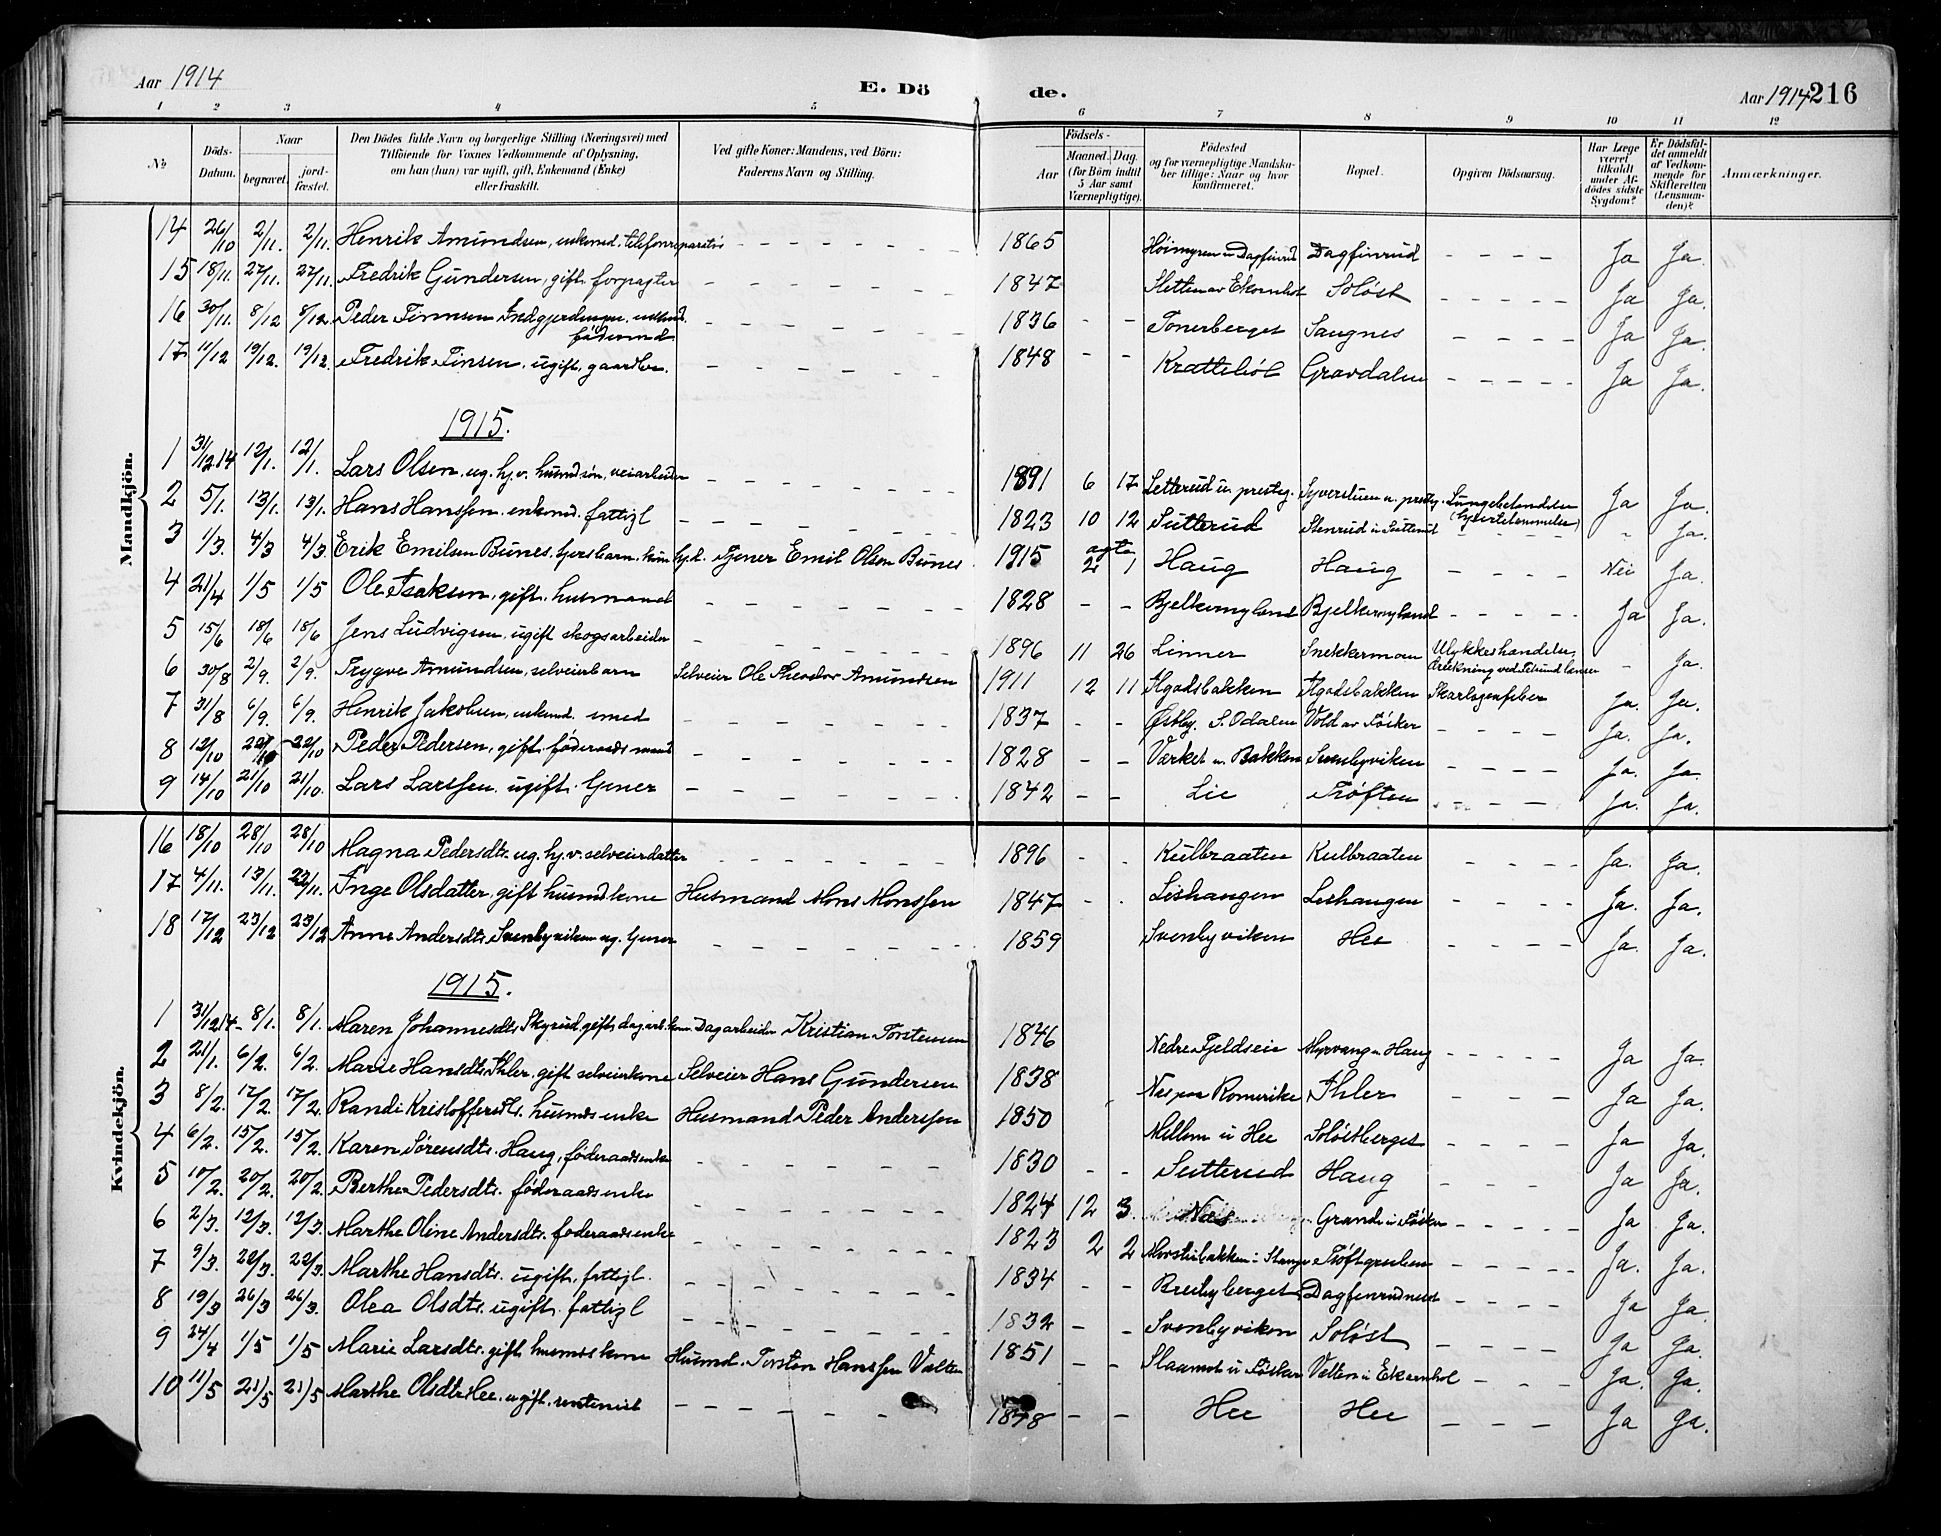 Aar 1914 E. Döde. Aar 1914 216
1 2 3 4 5 6 7 8 9 10 11 12
No
Döds-Datum.
Naar
begravet.
jord-fæstet.
Den Dödes fulde Navn og borgerlige Stilling (Næringsvei) med
Tilföiende for Voxnes Vedkommende af Oplysning,
om han (hun) var ugift, gift, Enkemand (Enke)
eller fraskilt.
Ved gifte Koner: Mandens, ved Börn:
Faderens Navn og Stilling.
Födsels-
Aar
Maaned. Dag.
(for Börn indtil
5 Aar samt
Værnepligtige).
Födested
og for værnepligtige Mandska-
ber tillige: Naar og hvor
konfirmeret.
Bopæl.
Opgiven Dödsaarsag.
Har Læge
været
tilkaldt
under Af-
dödes sidste
Sygdom?
Er Dödsfal-
det anmeldt
af Vedkom-
mende for
Skifteretten
(Lensman-
den)?
Anmærkninger.
Mandkjön.
14 26/10 2/11. 2/11. Henrik Amundsen, enkemd. telefonreparatør 1865 Høimyren u Dagfinrud Dagfinrud Ja Ja.
15 18/11. 27/11. 27/11. Fredrik Gundersen, gift, forpagter 1847 Sletten av Ekornhol Soløst Ja Ja.
16 30/11. 8/12 8/12 Peder Finnsen 1836 Tonerberget Sangnes Ja Ja.
føderaad
17 11/12 19/12. 19/12. Fredrik Finsen, ugift, gaardbr. 1848 Krattebøl Gravdalen Ja Ja.
1915.
1 31/12 14 12/1. 12/1. Lars Olsen, ug. hj.v. husmd.søn, veiarbeider 1891 6 17 Setterud u. presteg. Syverstuen u. presteg. Ja Ja.
2 5/1. 13/1. 13/1. Hans Hanssen, enkmd. fattigl 1823 10 12 Sutterud Stenrud u Sutterud " Ja.
3 1/3. 4/3 4/3 Erik Emilsen Bunes, Tjener Emil Olsen Bunes 1915 2 1 Haug Haug Nei Ja.
4 21/4 1/5 1/5 Ole Isaksen, gift, husmand 1828 Bjelkemyland Bjelkemyland Ja Ja.
5 15/6 18/6 18/6 Jens Ludvigsen, ugift skogsarbeider 1896 11 26 Linner Snekkermoen Ulykkeshændelse, - Ja.
6 30/8 2/9. 2/9. Trygve Amundsen, selveierbarn Selveier Ole Theodor Amundsen 1911 12 11 Agodsbakken Agodsbakken Skarlagensfeber Ja. Ja.
7 31/8 6/9. 6/9. Henrik Jakobsen, enkemd. smed 1837 Østby, S. Odalen Vold av Føsker Ja. Ja.
8 12/10 22/10 22/10 Peder Pedersen, gift føderaadsmand 1828 Værket u. Bakken Svenbyviken Ja. Ja.
9 14/10 21/10 21/10. Lars Larssen, ugift. tjener 1842 Lie Trøften Ja. Ja.
Kvindekjön.
16 18/10 28/10 28/10 Magna Pedersdt. ug. hj.v. selveierdatter 1896 Kulbraaten Kulbraaten Ja. Ja.
17 4/11. 13/11. 22/11. Inge Olsdatter, gift husmd.kone Husmand Mons Monssen 1847 Lishaugen Lishaugen Ja. Ja.
18 17/12 23/12 23/12 Anne Andersdt. Svenbyviken ug. tjener 1859 Svenbyviken Hee Ja. Ja.
1915.
1 31/12 14 8/1. 8/1. Maren Johannesdt. Skyrud, gift, dagarb.kone Dagarbeider Kristian Torstensen 1846 Nedre Fjeldseie Myrvang u Haug Ja Ja.
2 21/1. 6/2. 6/2. Marie Hansdt. Ihler, gift selveierkone Selveier Hans Gundersen 1838 Nes paa Romerike Ihler Ja Ja.
3 8/2. 17/2. 17/2. Randi Kristoffersdt. husmds enke Husmand Peder Anderssen 1850 Mellem u Hee Soløstberget Ja Ja.
4 6/2. 15/2. 15/2. Karen Sørensdt. Haug, føderaadsenke 1830 Sutterud Haug Ja Ja.
5 10/2. 20/2. 20/2. Berthe Pedersdt. føderaadsenke 1824 12 3 Næs Grande u Føsker Ja Ja.
6 2/3. 12/3. 12/3. Marthe Oline Andersdt. føderaadsenke 1823 2 2 Morstubakken i Stange Trøftgruben Ja. Ja.
7 9/3. 22/3. 22/3. Marthe Hansdt. ugift, fattigl. 1834 Breibyberget Dagfinrudnes Ja Ja.
8 19/3 26/3 26/3. Olea Olsdt. ugift, fattigl 1832 Svenbyviken Soløst Ja Ja.
9 24/4 1/5 1/5 Marie Larsdt. gift husmdskone Husmd. Torsten Hanssen Velten 1851 Slaamot u Føsker Velten u Ekornhol Ja. Ja.
10 11/5 21/5 21/5 Marthe Olsdt. Hee, ugift, rentenist 1848 Hee Hee Ja Ja.